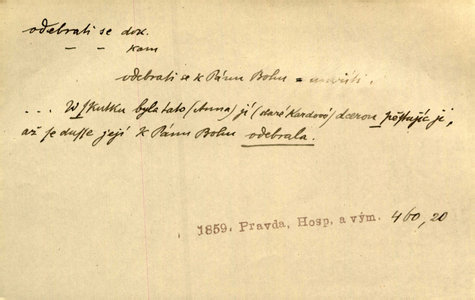 odebrati se dok.
– – kam
odebrati se k Pánu Bohu = umříti.
... W skutku byla tato (Anna) jí (
) dcerou pěstujíc ji,
až se dusse její k Pánu Bohu odebrala.
1859. Pravda, Hosp, a vým. 460, 20